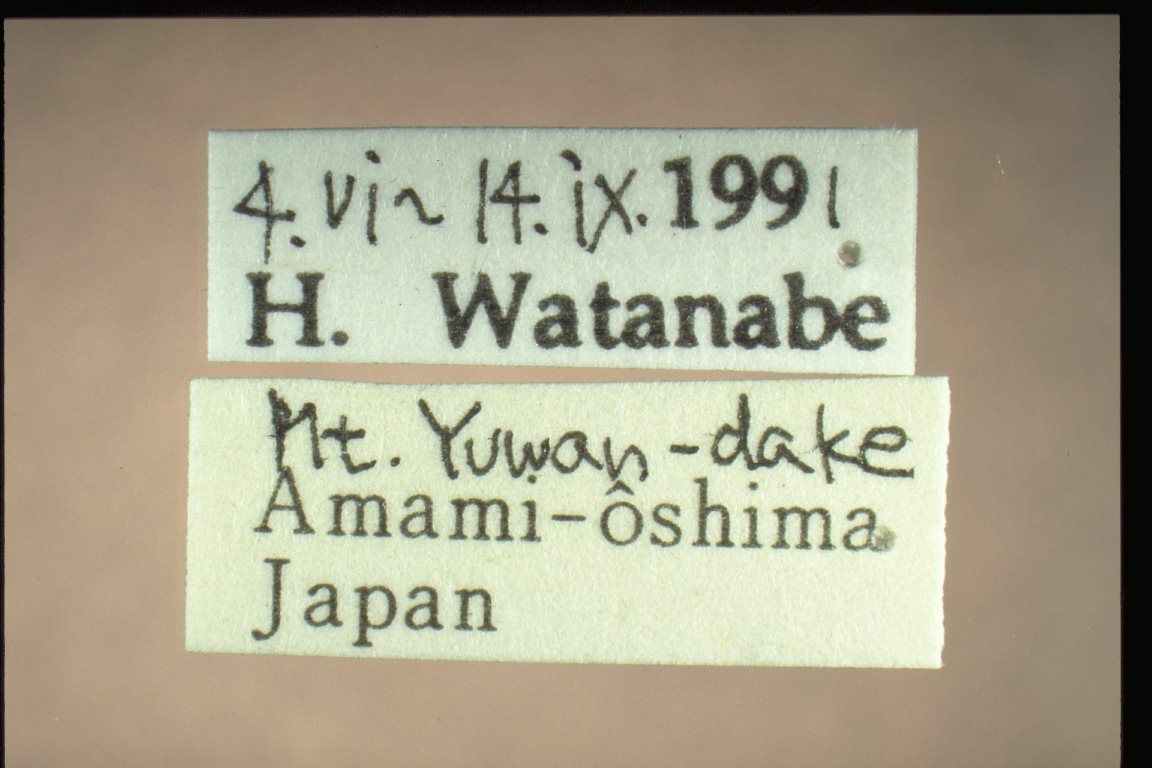 4. vi~ 14. ix. 1991
H. Watanabe
Mt. Yuwan-dake
Amami-ôshima
Japan